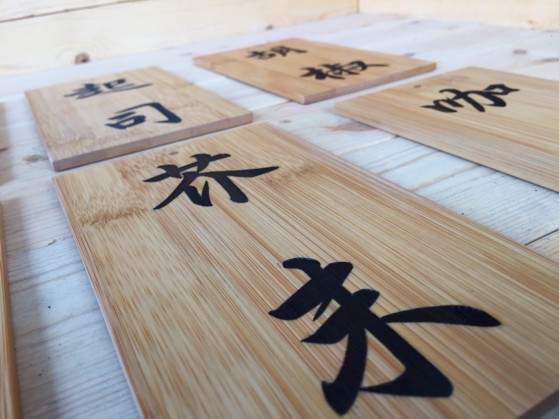 起司
胡椒
咖
芥末